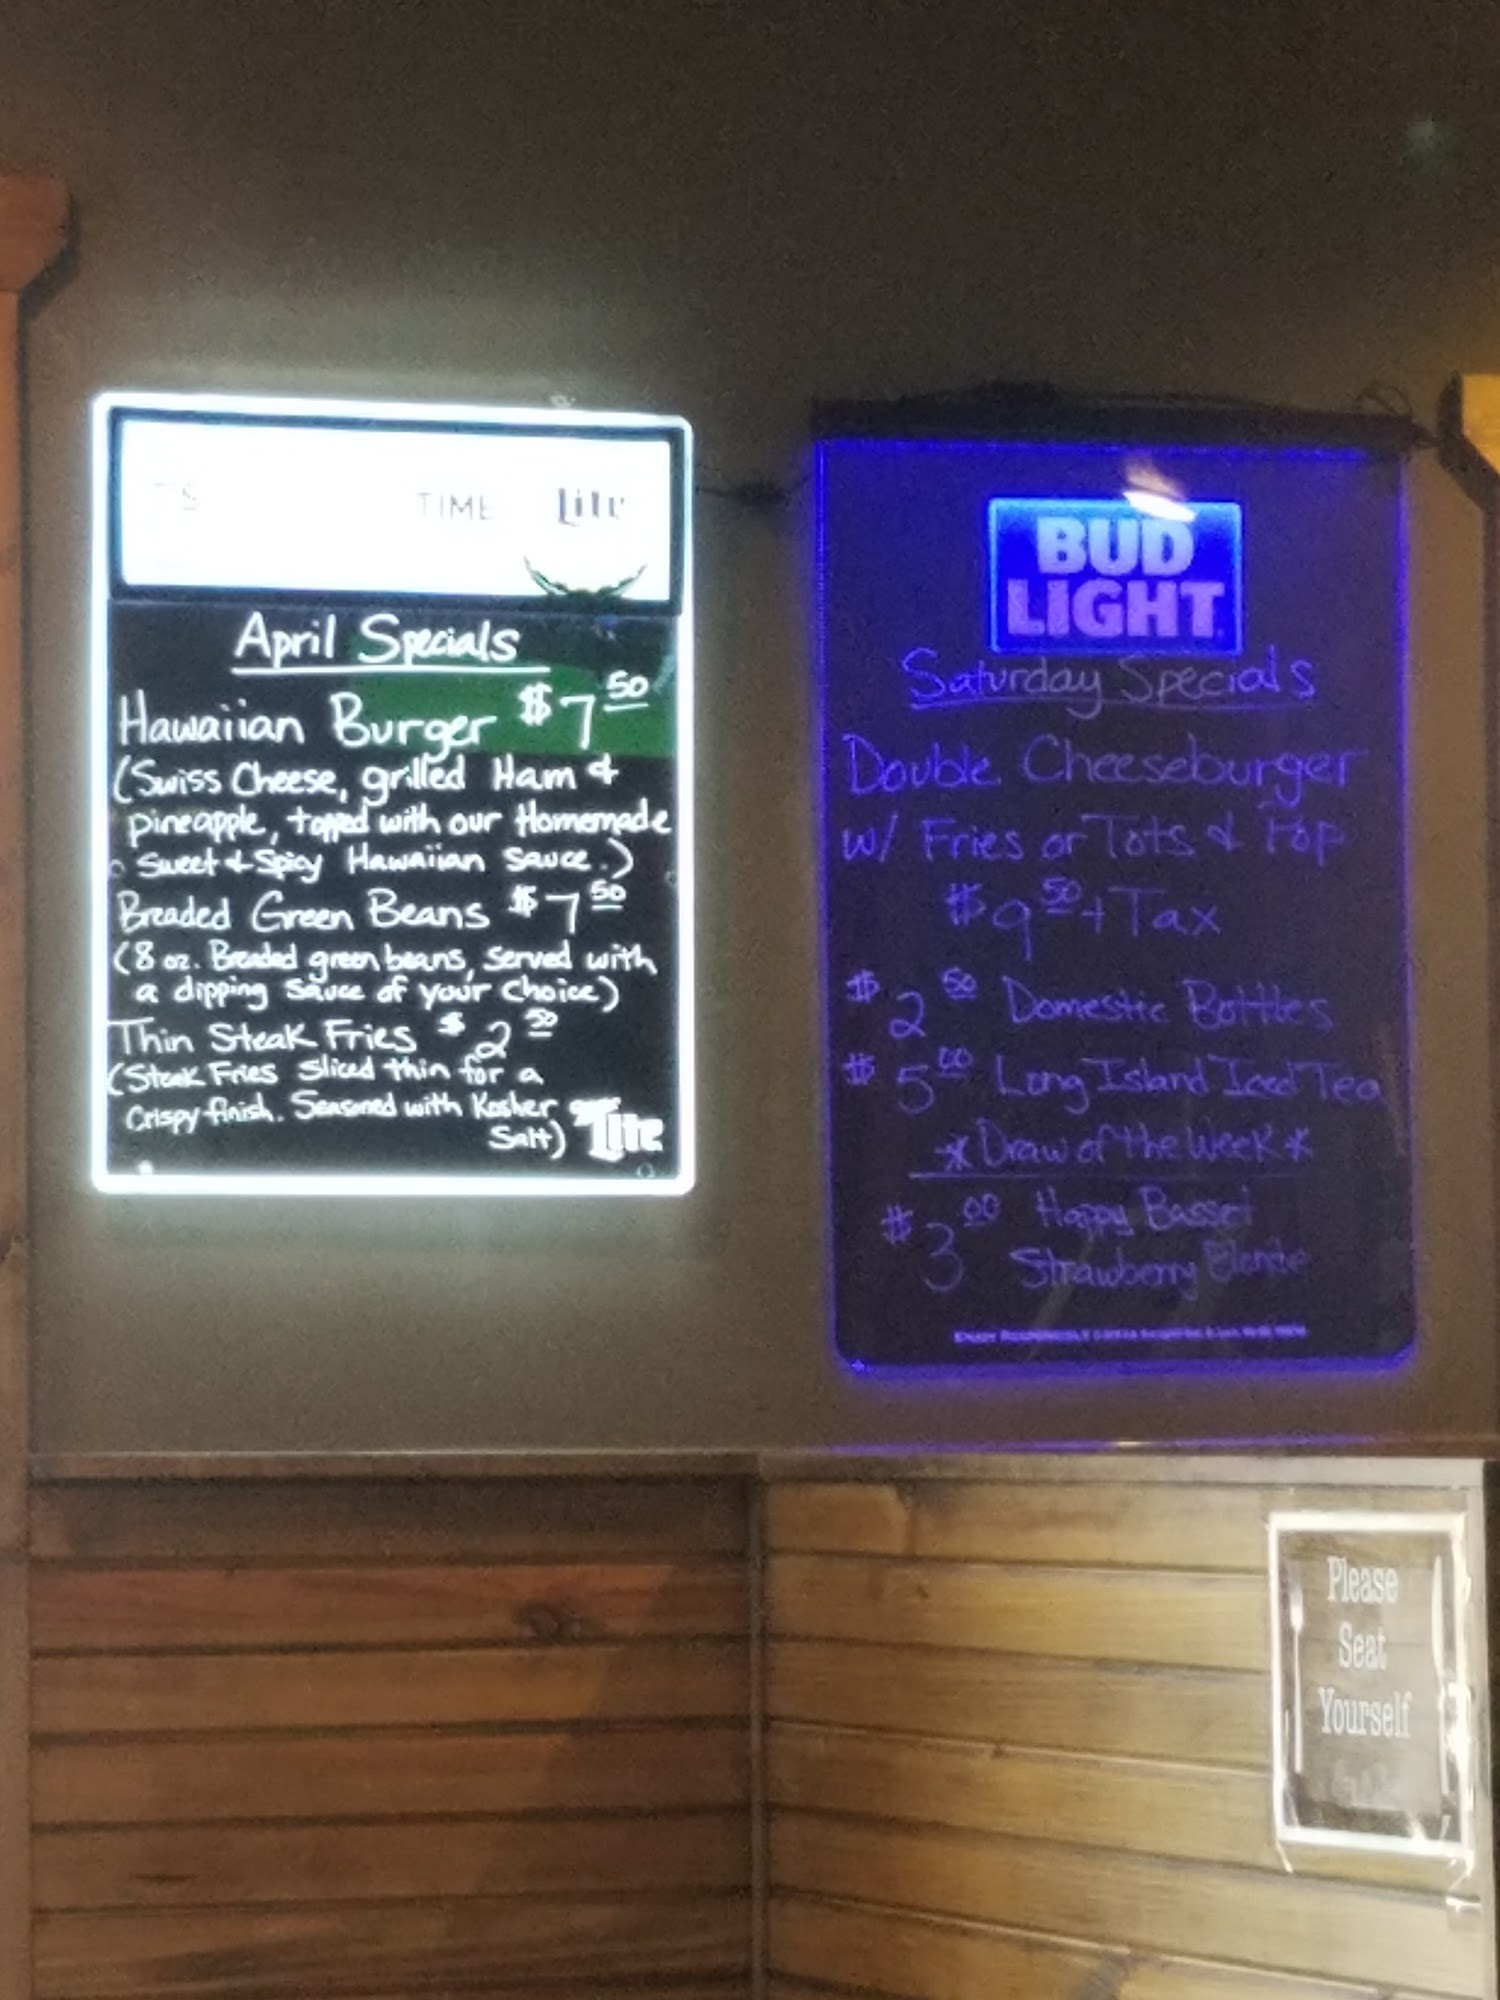 T'S TIME Lite
April Specials
Hawaiian Burger $7.50
(Swiss Cheese, grilled Ham &
pineapple, topped with our Homemade
Sweet & Spicy Hawaiian Sauce.)
Breaded Green Beans $7.50
(8 oz. Breaded green beans, served with
a dipping sauce of your choice)
Thin Steak Fries $2.50
(Steak Fries sliced thin for a
Crispy finish. Seasoned with Kosher
Salt)
Lite
BUD
LIGHT
Saturday Specials
Double Cheeseburger
w/ Fries or Tots & Pop
$9.50 + Tax
$2.50 Domestic Bottles
$5.00 Long Island Iced Tea
*Draw of the Week*
$3.00 Happy Basset
Strawberry Blonde
ENJOY RESPONSIBLY
Please
Seat
Yourself